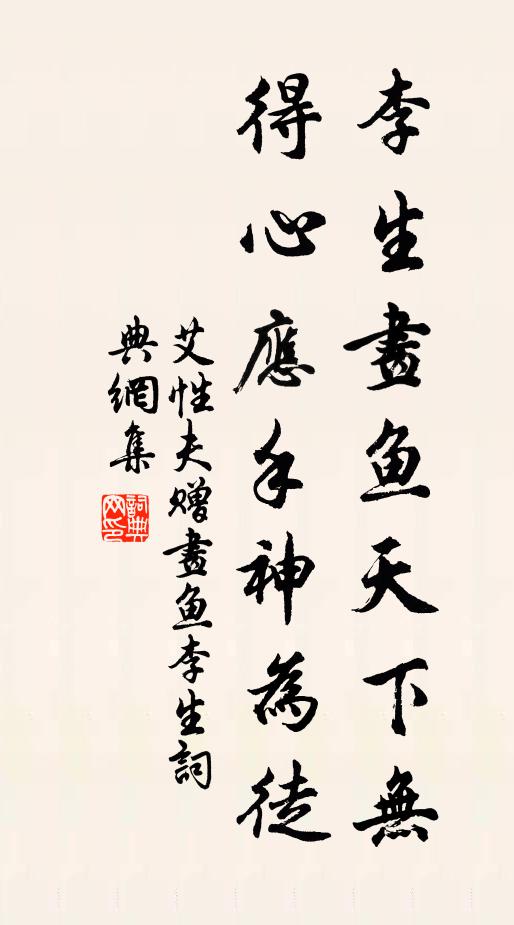 李生畫魚天下無
得心應手神為徒
艾性夫贈畫魚李生詞
典網集
詞典網印